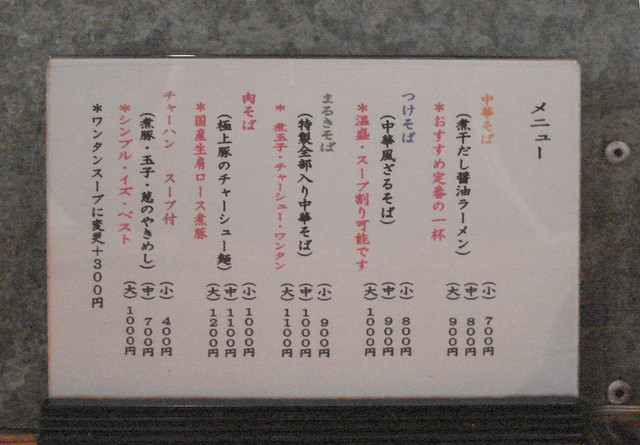 メニュー
中華そば (小) 700円
(煮干だし醤油ラーメン) (中) 800円
*おすすめ定番の一杯 (大) 900円
つけそば (小) 800円
(中華風ざるそば) (中) 900円
*温盛・スープ割り可能です (大) 1000円
まるきそば (小) 900円
(特製全部入り中華そば) (中) 1000円
*煮玉子・チャーシュー・ワンタン (大) 1100円
肉そば (小) 1000円
(極上豚のチャーシュー麺) (中) 1100円
*国産生肩ロース煮豚 (大) 1200円
チャーハン スープ付 (小) 400円
(煮豚・玉子・葱のやきめし) (中) 700円
*シンプル・イズ・ベスト (大) 1000円
*ワンタンスープに変更+300円